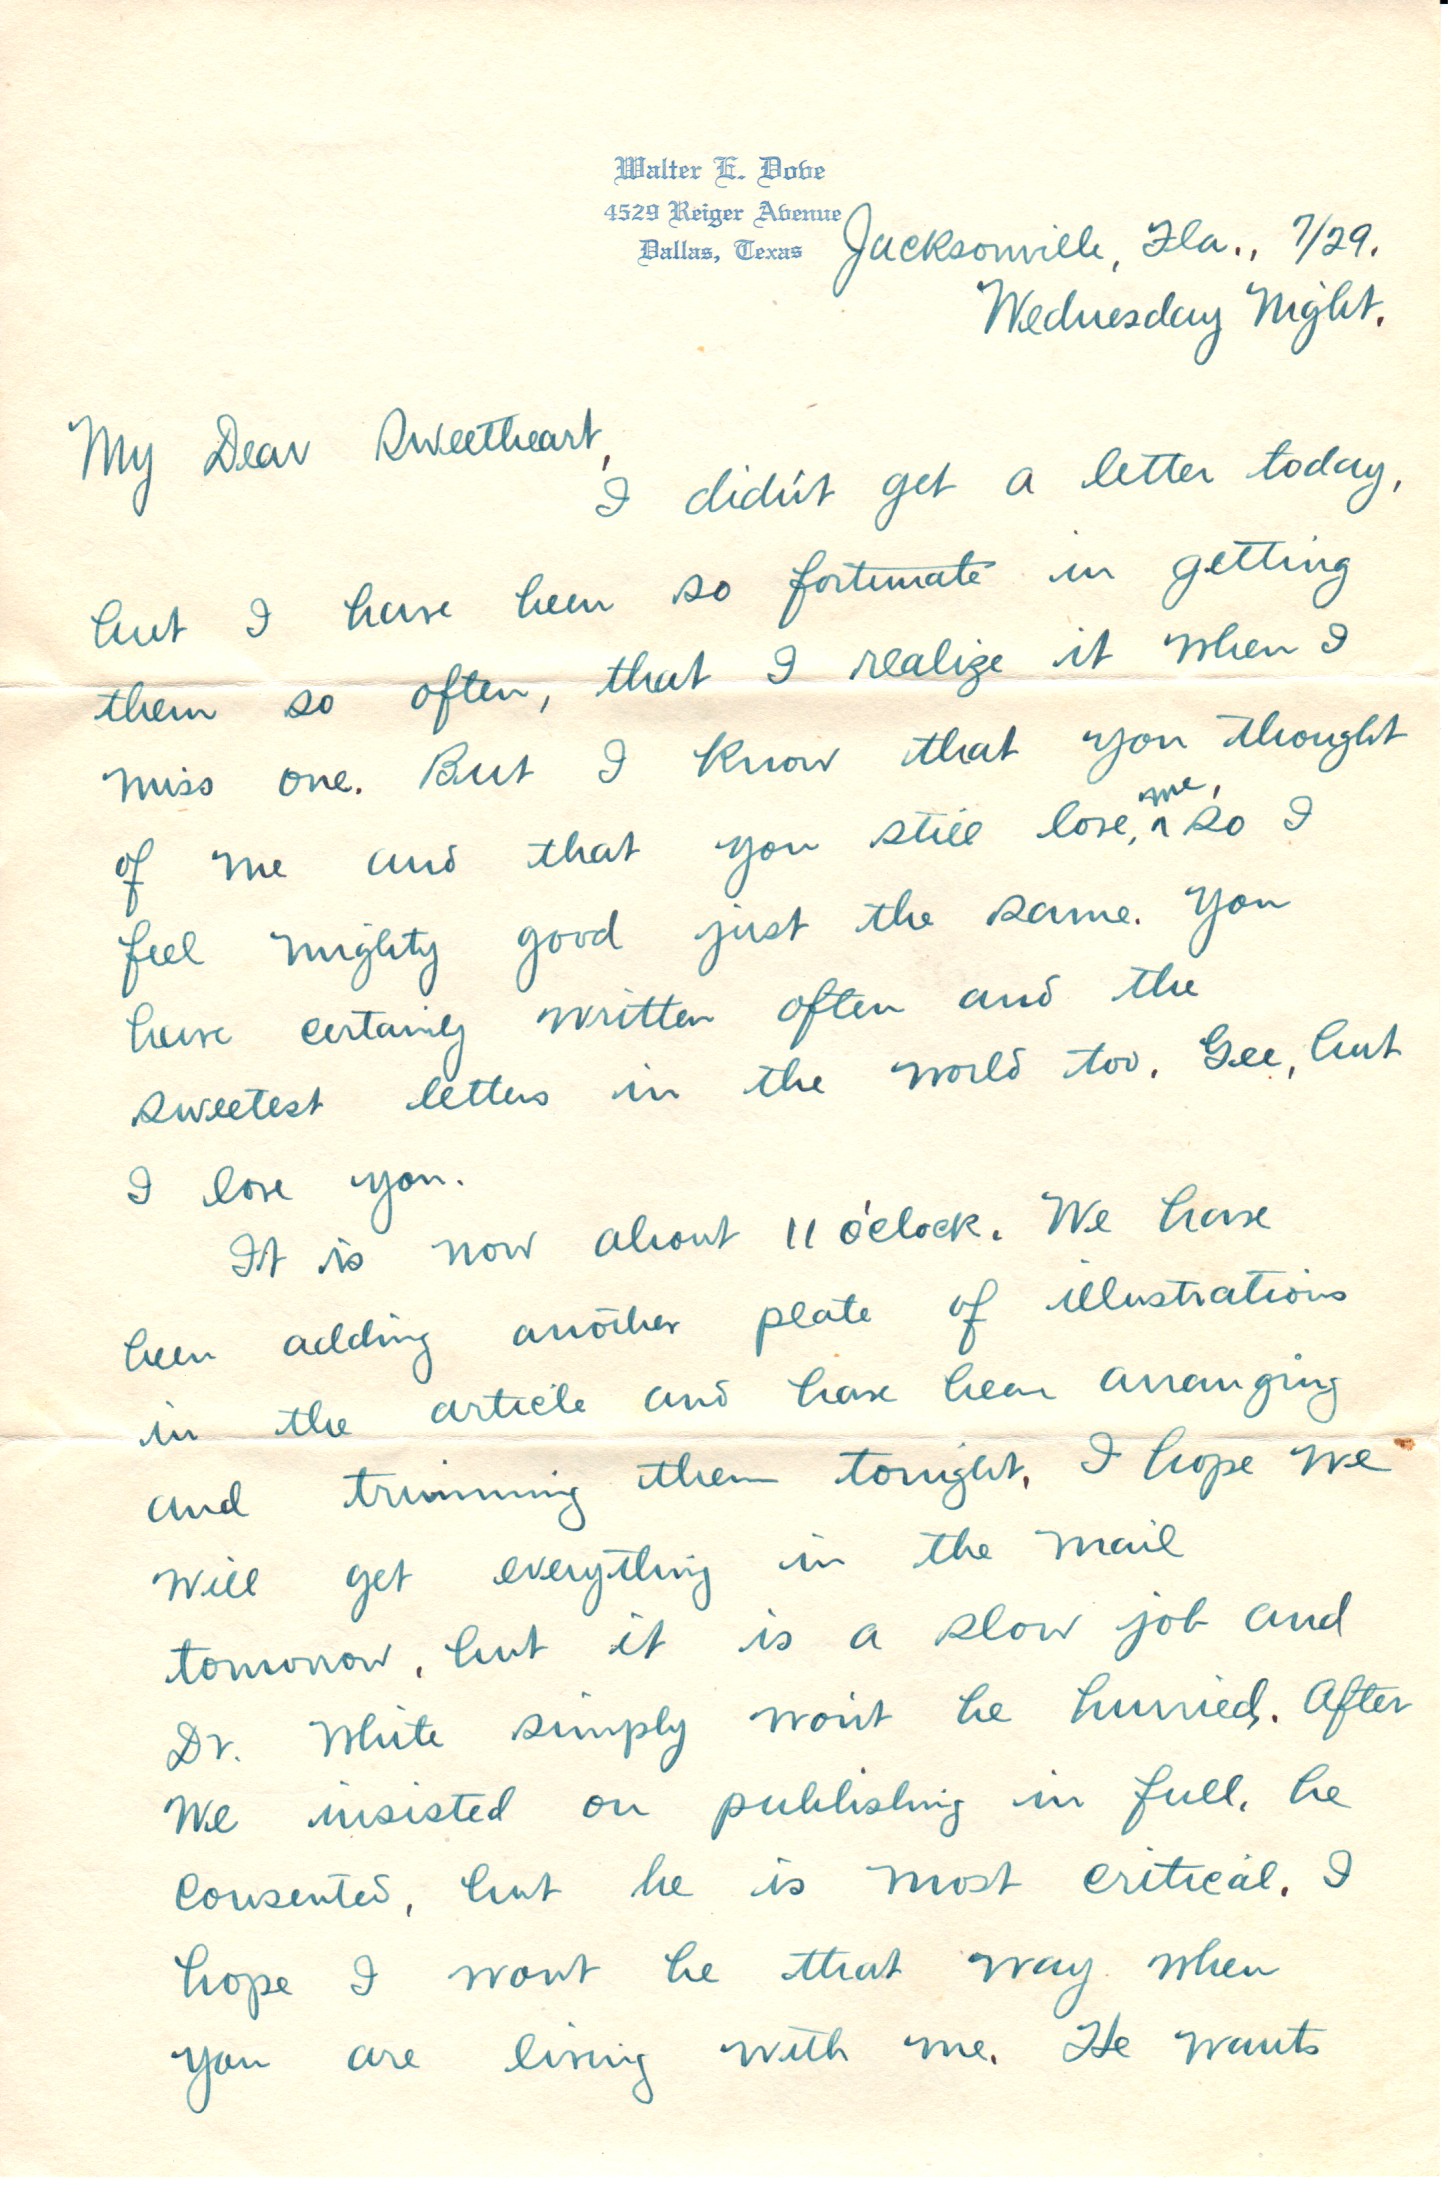 Walter E. Dove
4529 Reiger Avenue
Dallas, Texas
Jacksonville, Fla., 7/29.
Wednesday Night.
My Dear Sweetheart,
I didn't get a letter today,
but I have been so fortunate in getting
them so often, that I realize it when I
miss one. But I know that you thought
of me and that you still love, me, so I
feel mighty good just the same. You
have certainly written often and the
sweetest letters in the world too. Gee, but
I love you.
It is now about 11 o'clock. We have
been adding another plate of illustrations
in the article and have been arranging
and trimming them tonight. I hope we
will get everything in the mail
tomorrow, but it is a slow job and
Dr. White simply won't be hurried. After
we insisted on publishing in full, he
consented, but he is most critical. I
hope I wont be that way when
you are living with me. He wants